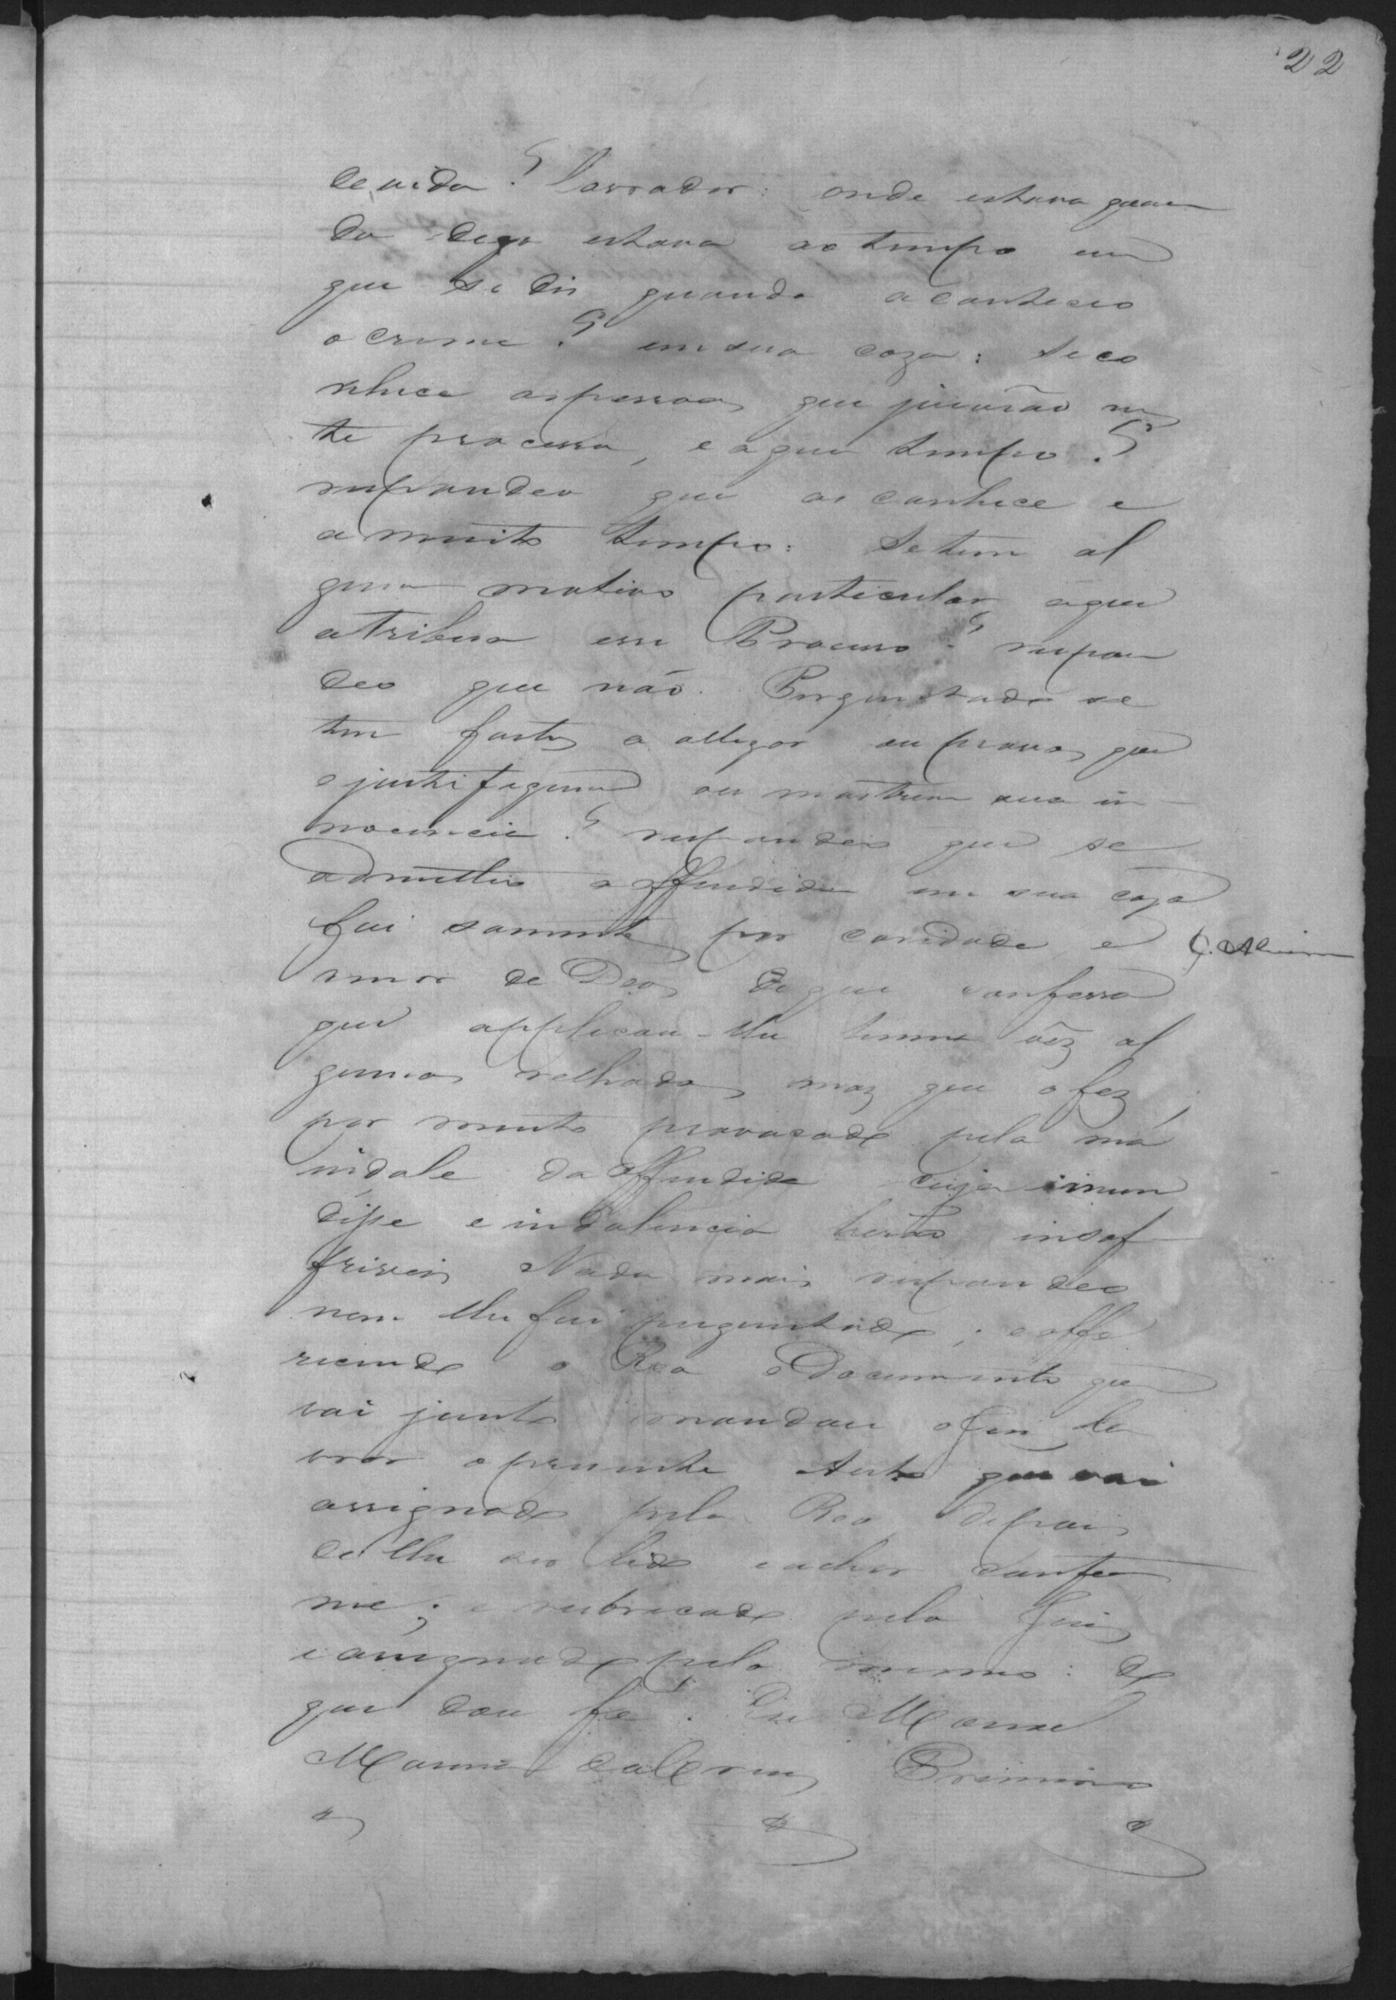 22
de vida? lavrador: onde estava quan
do digo estava ao tempo em
que se diz quando aconteceo
o crime? em sua caza: se co
nhece as pessoas que jurarão nes
te processo, e a que tempo?
respondeo que as conhece e
a muito tempo: Se tem al
gum motivo particular a que
atribua esse Processo? respon
deo que não. Perguntado se
tem factos a allegar ou provas que
o justifiquem ou mostrem sua in
nocencia? respondeo que se
admittio a offendida em sua caza
foi somente por caridade e
C. Alvim
amor de Deos de que confessa
que applicou-lhe huma vêz al
gumas relhadas, maz que o fez
por muito provocado pela má
indole da offendida cuja imun
dise e indolencia herão insof
friveis Nada mais respondeo
nem lhe foi perguntado; e offe
recendo o Reo o Documento que
vai junto mandou o Juiz la
vrar o presente Auto que vai
assignado pelo Reo depois
de lhe ser lido e achar confor
me; e rubricado pelo Juiz
e assignado pelo mesmo: do
que dou fé. Eu Manoel